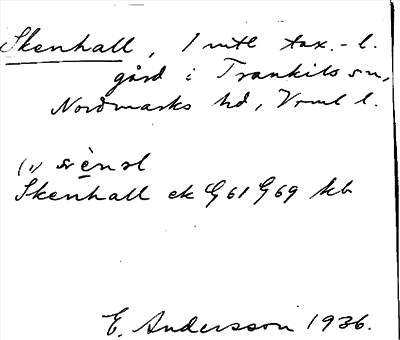 Skenhall, 1 mtl tax.-l.
gård i Trankils sn,
Nordmarks hd, Vrml l.
(,)
Skenhall ek G61 G69 kb
E. Andersson 1936.